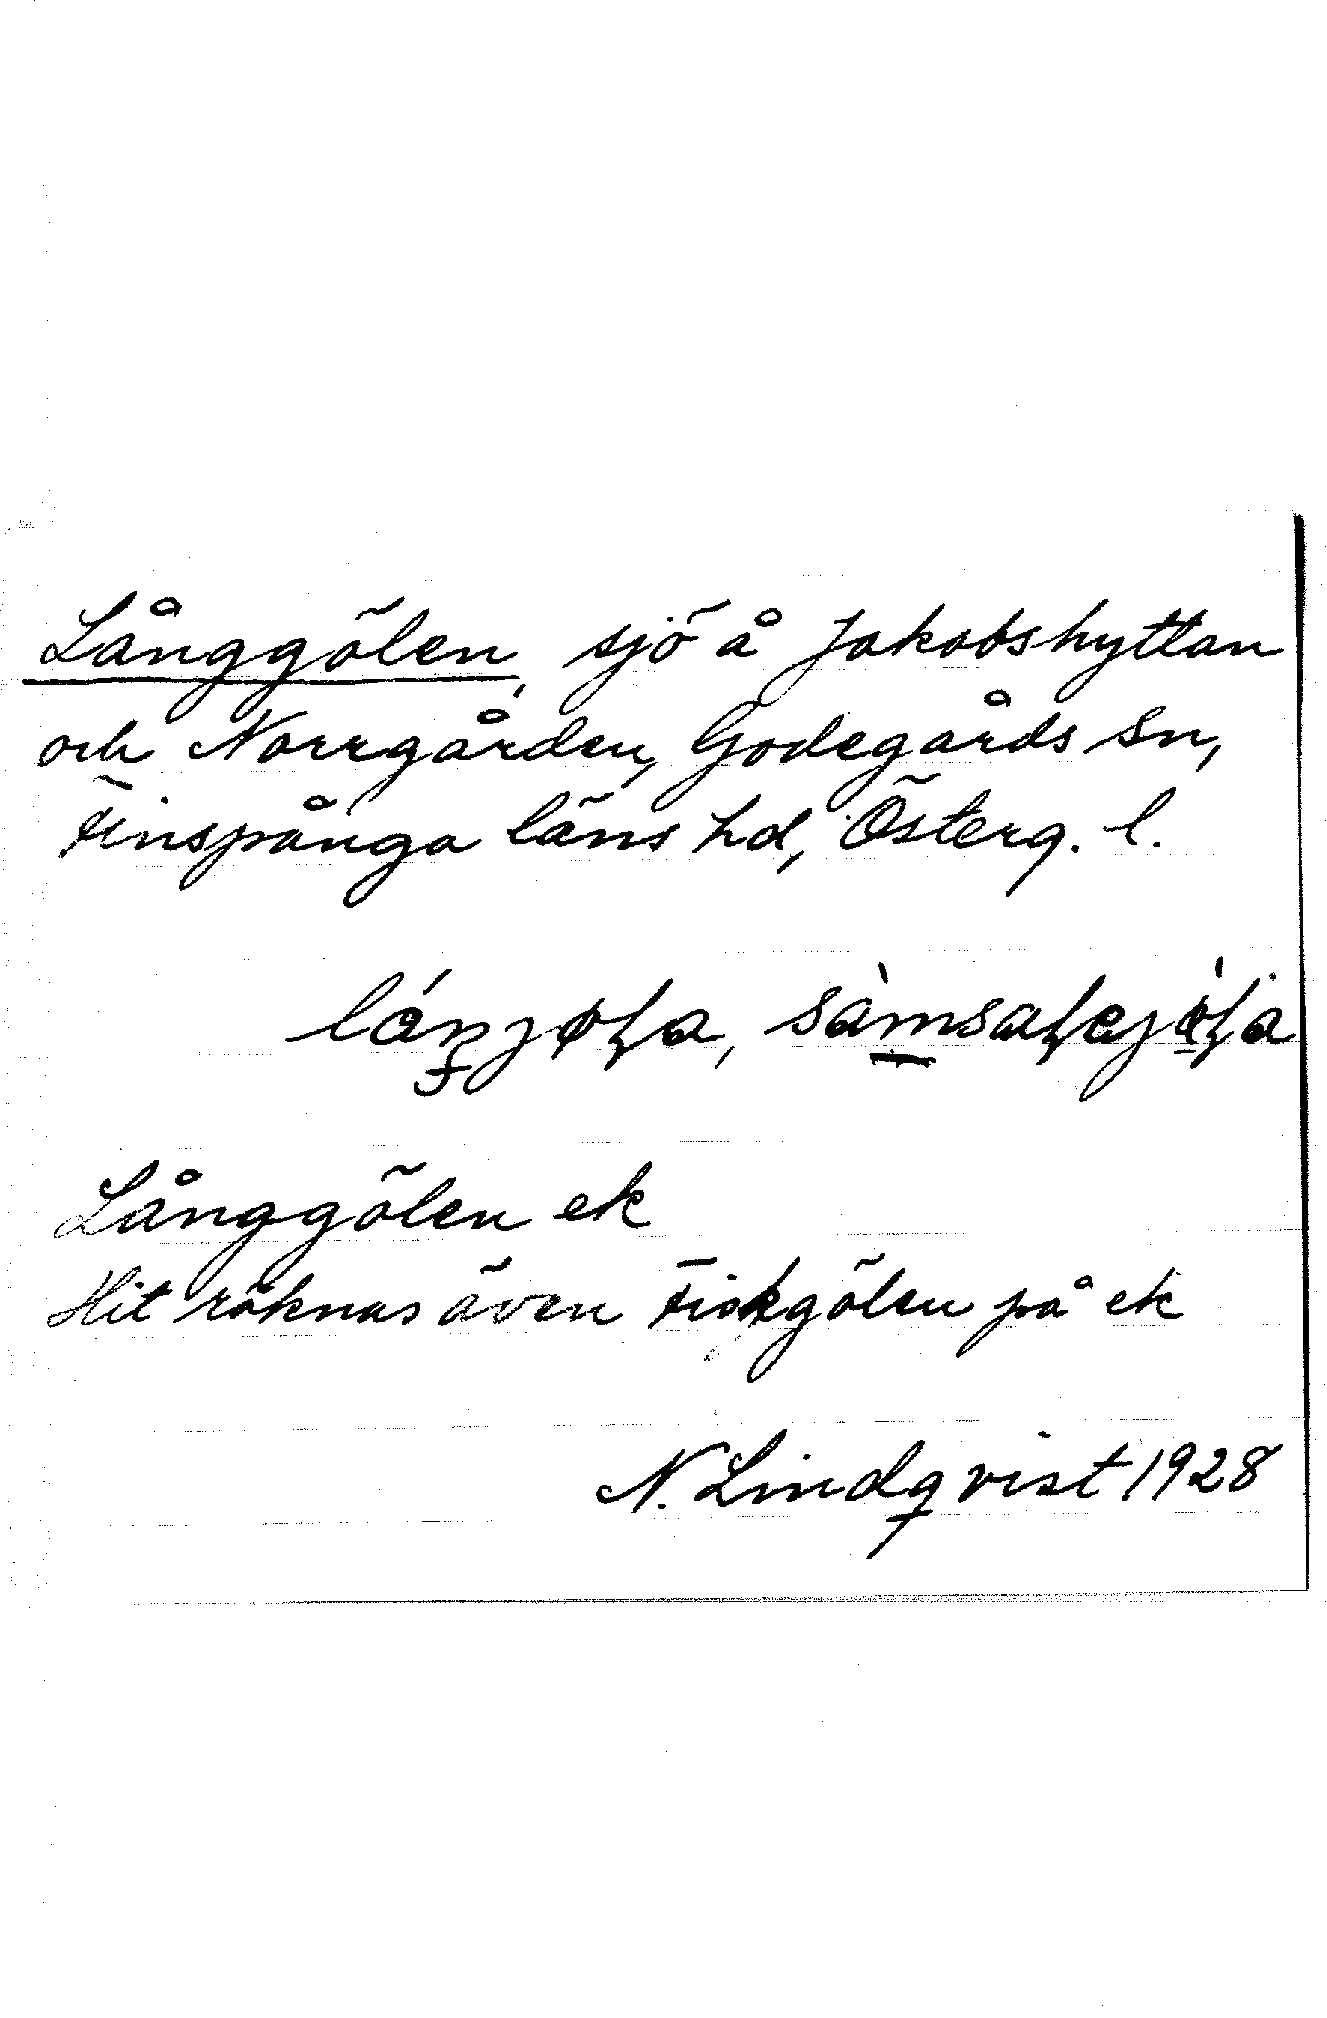 Långgölen, sjö å Jakobshyttan
och Norrgården, Godegårds sn,
Finspånga läns hd, Österg. l.
Långgölen ek
Hit räknas även Fiskgölen på ek
N. Lindqvist 1928